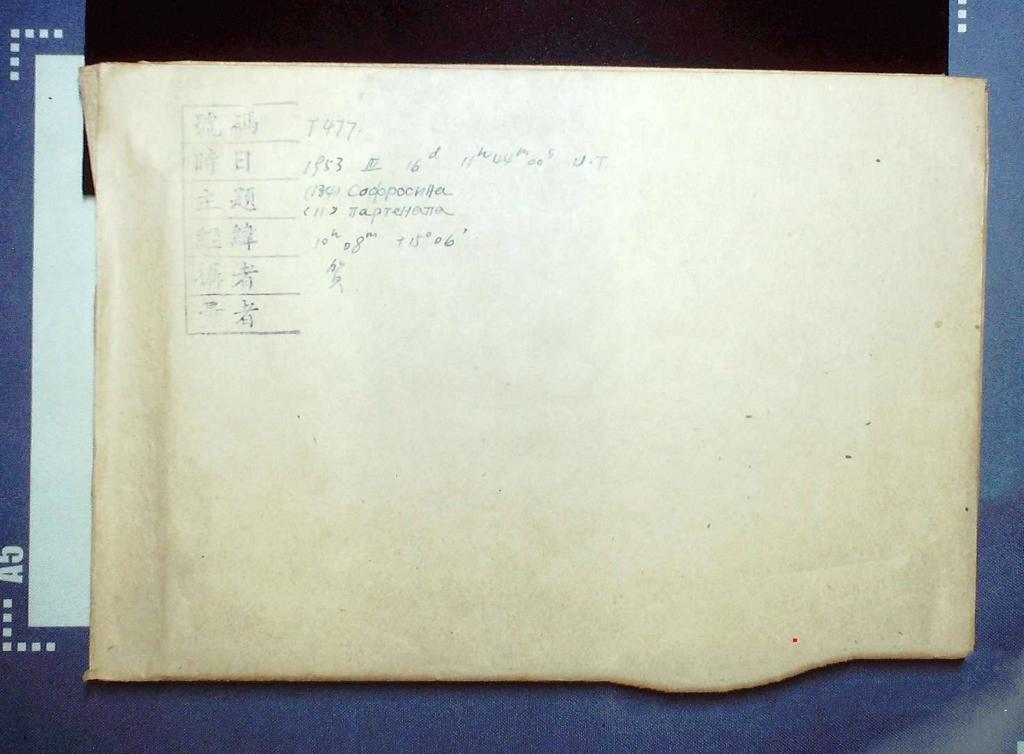 號碼 T477.
時日 1953 III 16d 11h44m00s U.T.
主題 (134) Софросина
(11) Партенапа
經緯 10h08m +15°06'
攝者
尋者
A5